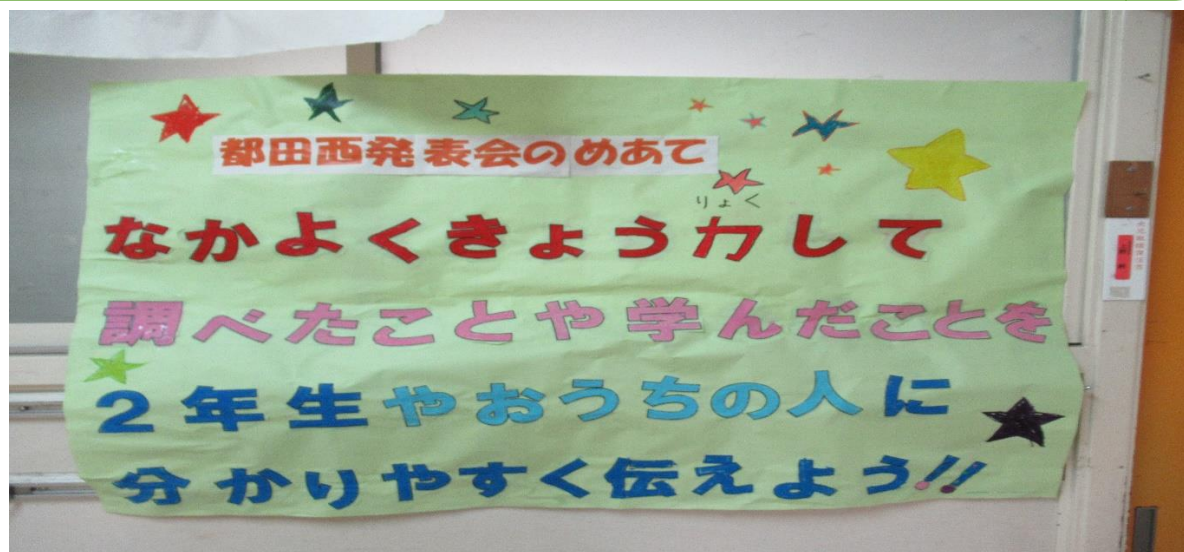 都田西発表会のめあて
りょく
なかよくきょう力して
調べたことや学んだことを
2年生やおうちの人に
分かりやすく伝えよう!!